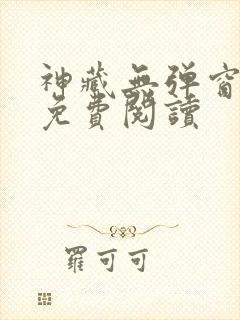 神藏無弹窗
免費閱讀
羅可可